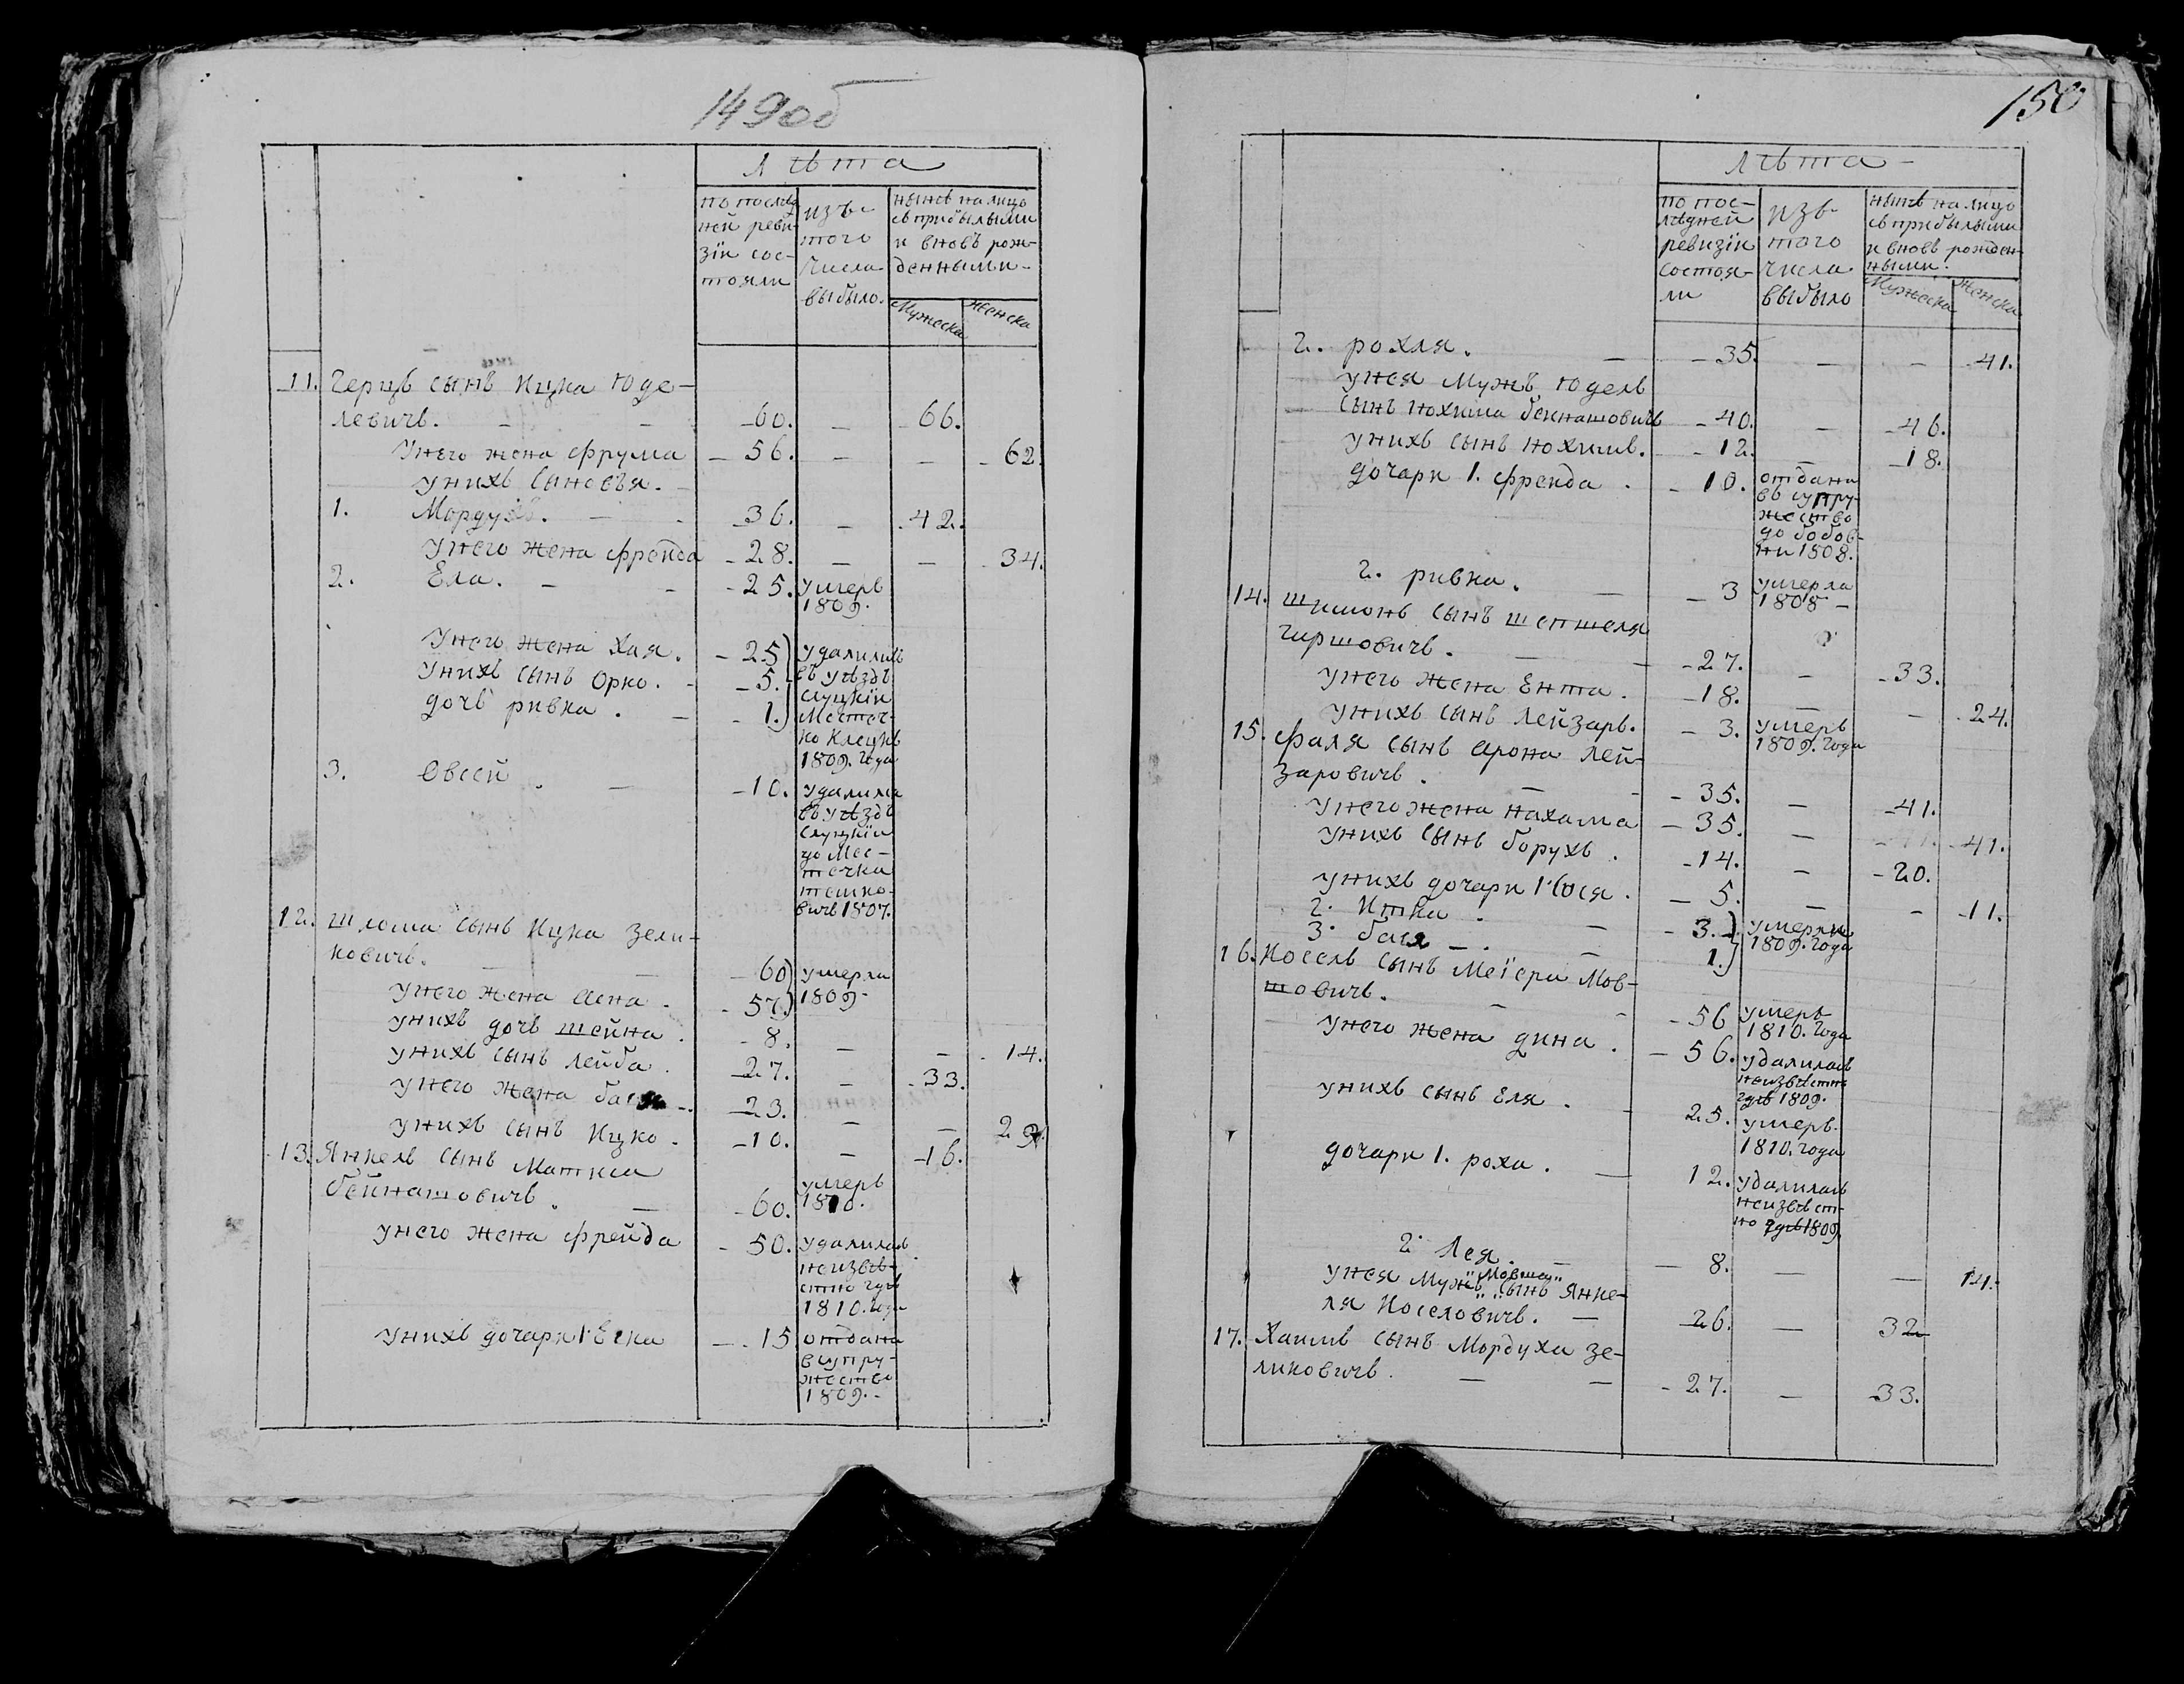 149об
Лѣта
по послѣд
ней реви-
зіи сос-
тояли
изъ-
того
числа
выбыло.
нынѣ на лицо
съ прибылыми
и вновь рож-
денными-
Мужеска
Женска
11. Герцъ сынъ Ицка Юде-
левичъ. - - 60. - 66.
У него жена Фрума - 56. - - 62.
У нихъ сыновья.
1. Мордухъ. - - 36. - 42.
У него жена Фрейда - 28. - - 34.
2. Ела. - - 25. умеръ
1809.
У него жена Хая. - 25) удалились
У нихъ сынъ Орко. - 5. въ уѣздъ
слуцкіи
дочь ривка. - 1.) Местеч-
ко Клецкъ
1809. года
3. Овсей. - 10. удалился
въ уѣздъ
слуцкіи
до Мес-
течка
тимко-
вичъ 1807.
12. Шлома сынъ Ицка Зели-
ковичъ. - - 60) умерла
У него жена Асна. - 57.) 1809-
У нихъ дочь шейна. - 8. - - 14.
У нихъ сынъ лейба. 27. - 33.
У него жена бася -. 23. - - 29.
У нихъ сынъ Ицко. - 10. - 16.
13. Янкель сынъ Матиса
бейнашовичъ. - - 60. умеръ
1810.
У него жена фрейда - 50. удалилась
неизвѣ-
стно гдѣ
1810. года
У нихъ дочари 1. Еска - 15 отдана
в супру-
жество
1809.-
150
Лѣта -
по пос-
лѣдней
ревизіи
состоя-
ли
изъ-
того
числа
выбыло
нынѣ на лицо
съ прибылыми
и вновь рожден-
ными.
Мужеска
Женска
2. рохля. - - 35. - - 41.
У нея Мужъ Юдель
сынъ Нохима бейнашовичъ - 40. - 46.
У нихъ сынъ нохимъ. - 12. - 18.
дочари 1. фрейда. - 10. отдана
въ супру-
жество
до бобов-
ни 1808.
2. ривка. - - 3 умерла
1808 -
14. шимонъ сынъ шепшеля
гиршовичъ. - - 27. - 33.
У него жена Ента. - 18. - - 24.
У нихъ сынъ лейзаръ. - 3. умеръ
1809. года
15. Фаля сынъ Арона лей-
заровичъ. - - 35. - 41.
У него жена нахама - 35. - 41.
У нихъ сынъ борухъ. - 14. - 20.
У нихъ дочари 1. Юся. - 5. - - 11.
2. Итка. - - 3.) умерли
3. бася -. - 1.) 1809. года
16. Носель сынъ Меіера Мов-
шовичъ. - - 56 умеръ
1810. года
У него жена дина. - 56. удалилась
неизвѣстно
гдѣ 1809.
У нихъ сынъ Еля. - 25. умеръ.
1810. года
дочари 1. роха. - 12. удалилась
неизвѣст-
но гдѣ 1809.
2. Лея. - - 8. - - 14.
"Мовшей"
У нея Мужъ " сынъ Янке-
ля Носеловичъ. - 26. - 32
17. Хаимъ сынъ Мордуха Зе-
ликовичъ. - - 27. - 33.